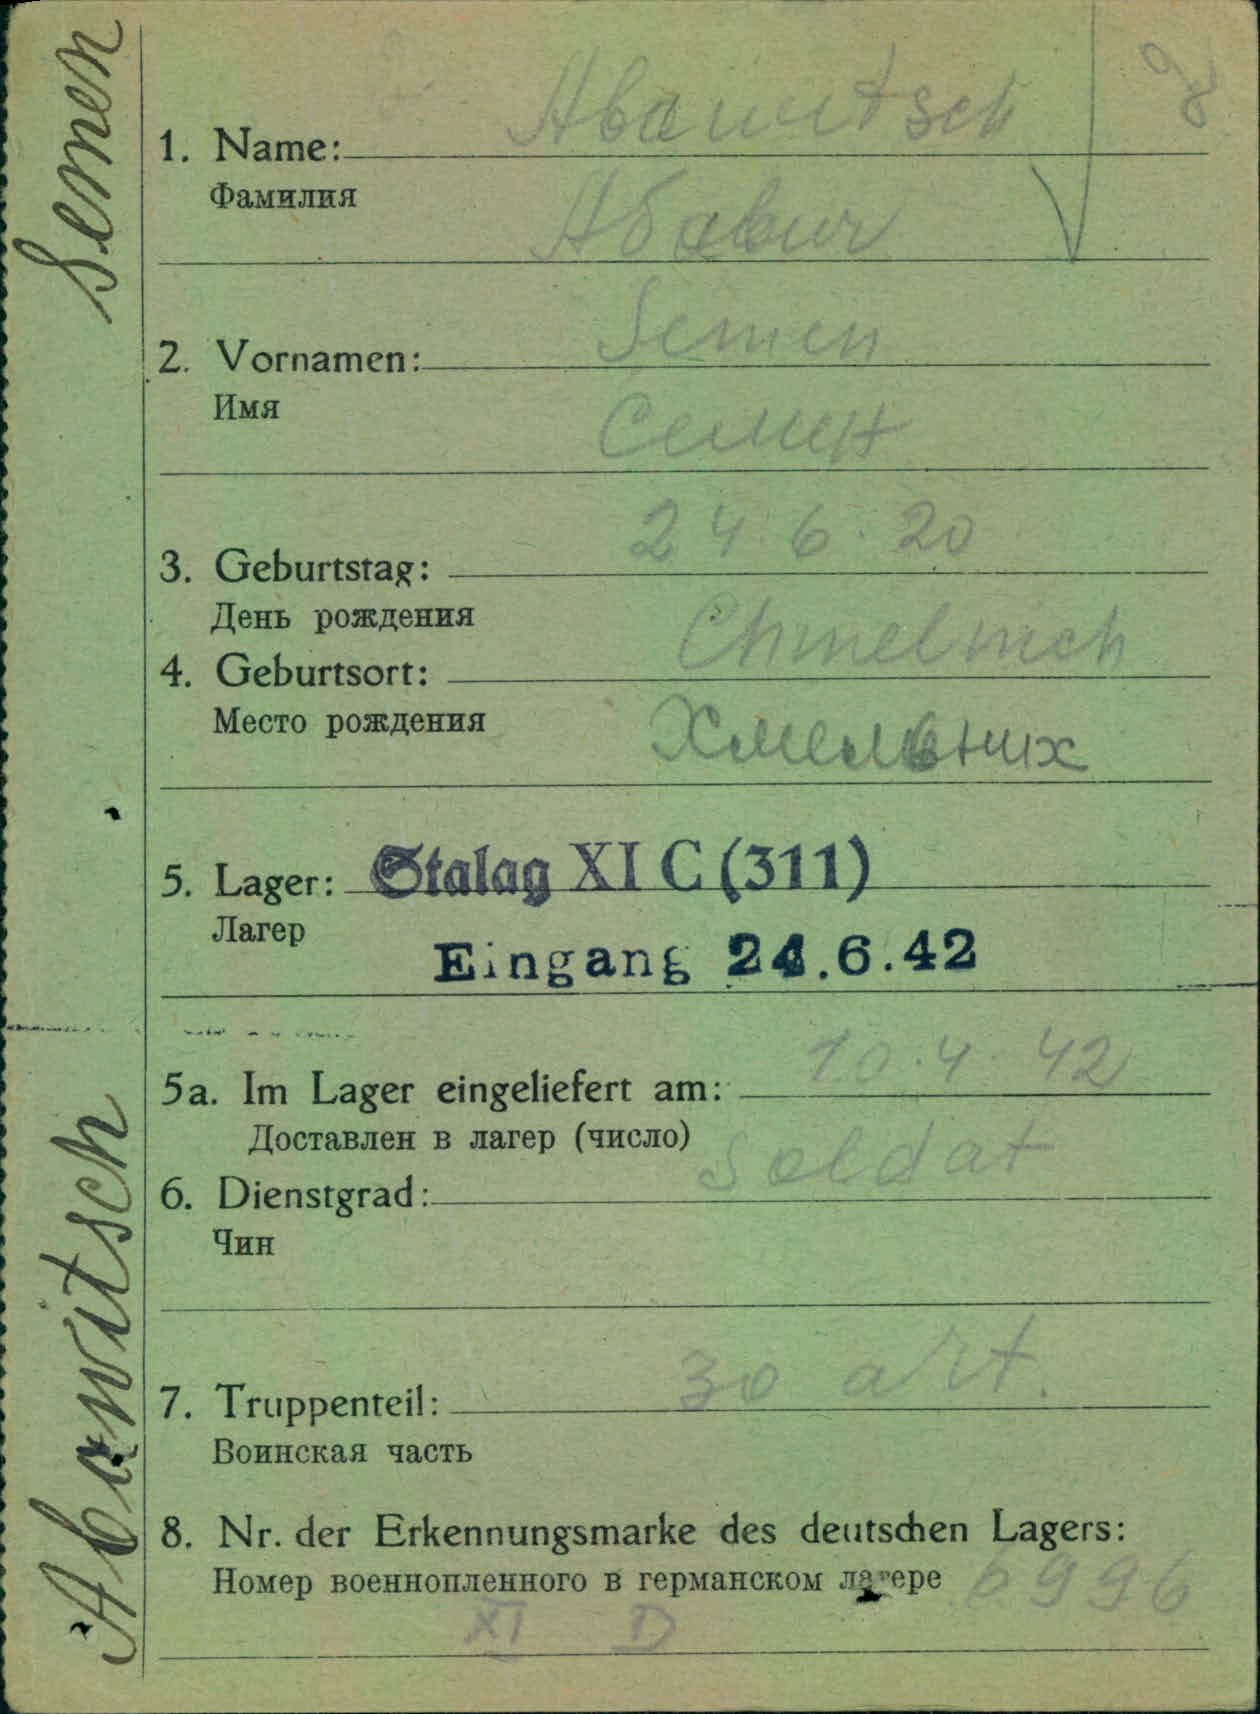 Semen
Abawitsch
1. Name: Abawitsch
Фамилия Абавич
2. Vornamen: Semen
Имя Семен
3. Geburtstag: 24.6.20
День рождения
4. Geburtsort: Chmelnich
Место рождения Хмельних
5. Lager: Stalag XI C (311)
Лагер
Eingang 24.6.42
5a. Im Lager eingeliefert am: 10.4.42
Доставлен в лагер (число)
6. Dienstgrad: Soldat
Чин
7. Truppenteil: 30 art.
Воинская часть
8. Nr. der Erkennungsmarke des deutschen Lagers:
Номер военнопленного в германском лагере 6996
XI D